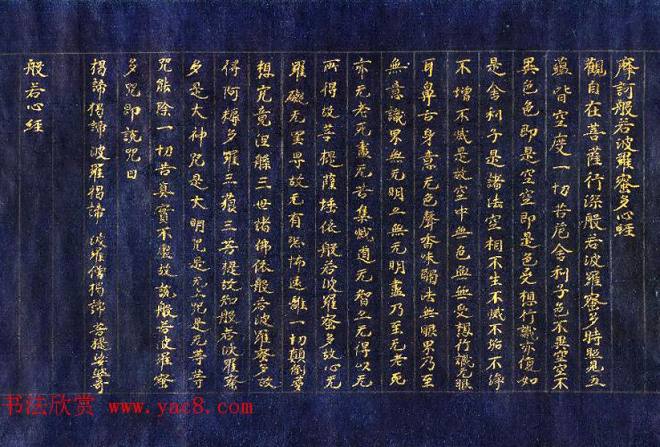 摩訶般若波羅蜜多心經
觀自在菩薩行深般若波羅蜜多時照見五
蘊皆空度一切苦厄舍利子色不異空空不
異色色即是空空即是色受想行識亦復如
是舍利子是諸法空相不生不滅不垢不淨
不增不減是故空中無色無受想行識无眼
耳鼻舌身意无色聲香味觸法無眼界乃至
無意識界無无明亦無无明盡乃至无老死
亦无老死盡无苦集滅道无智亦无得以无
所得故菩提薩埵依般若波羅蜜多故心无
罣礙无罣导故无有恐怖遠離一切顛倒夢
想究竟涅槃三世諸佛依般若波羅蜜多故
得阿耨多羅三藐三菩提故知般若波羅蜜
多是大神咒是大明咒是无上咒是无等等
咒能除一切苦真實不虛故說般若波羅蜜
多咒即說咒曰
揭諦揭諦 波羅揭諦 波羅僧揭諦 菩提娑婆訶
般若心經
书法欣赏 www.yac8.com